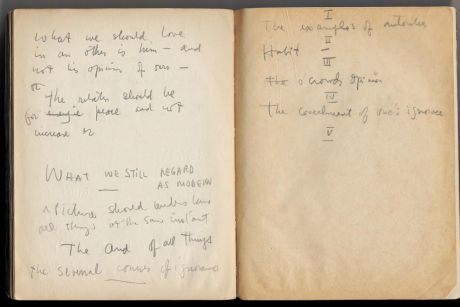 What we should love
in an other is him — and
not his opinion of ours —
or
The relation should be
for peace and not
increase
WHAT WE STILL REGARD
AS MODERN
Pictures should
all things at the same instant
The And of all Things
the several causes of ignorance
I
The examples of
II
Habit
III
the crowds opinion
IV
The concealment of one's ignorance
V